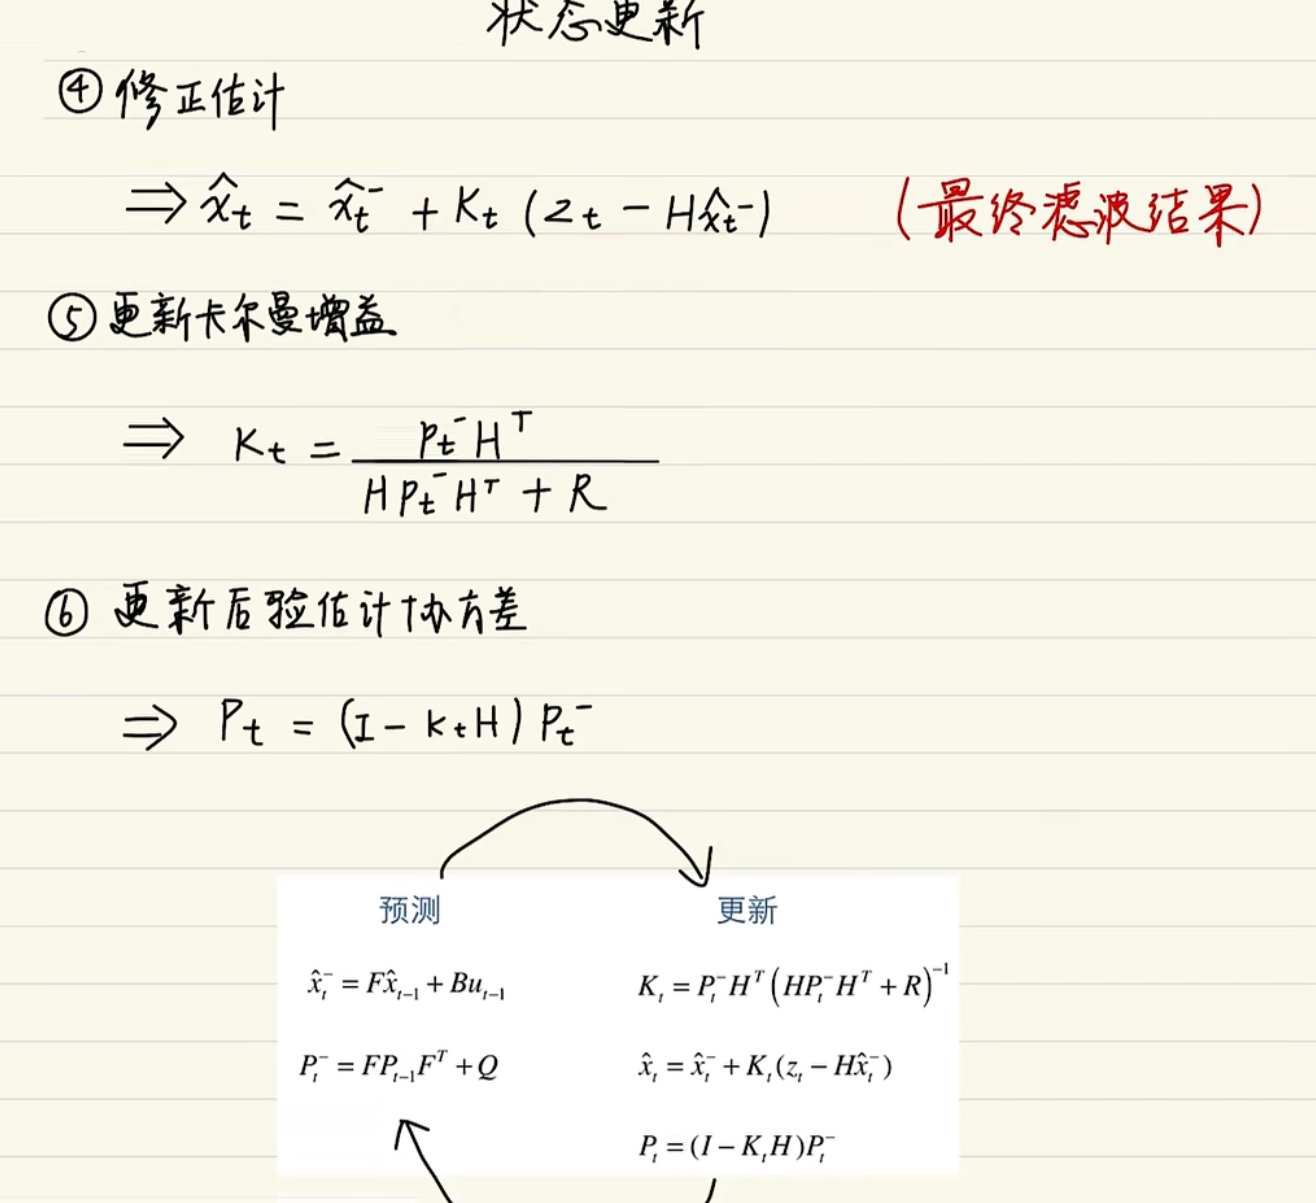 状态更新
④ 修正估计
⇒ x̂t = x̂t⁻ + Kt (zt − Hx̂t⁻) (最终滤波结果)
⑤ 更新卡尔曼增益
⇒ Kt = Pt⁻Hᵀ / HPt⁻Hᵀ + R
⑥ 更新后验估计协方差
⇒ Pt = (I − KtH) Pt⁻
预测 更新
x̂t⁻ = Fx̂t−1 + But−1 Kt = Pt⁻Hᵀ(HPt⁻Hᵀ + R)⁻¹
Pt⁻ = FPt−1Fᵀ + Q x̂t = x̂t⁻ + Kt(zt − Hx̂t⁻)
Pt = (I − KtH)Pt⁻